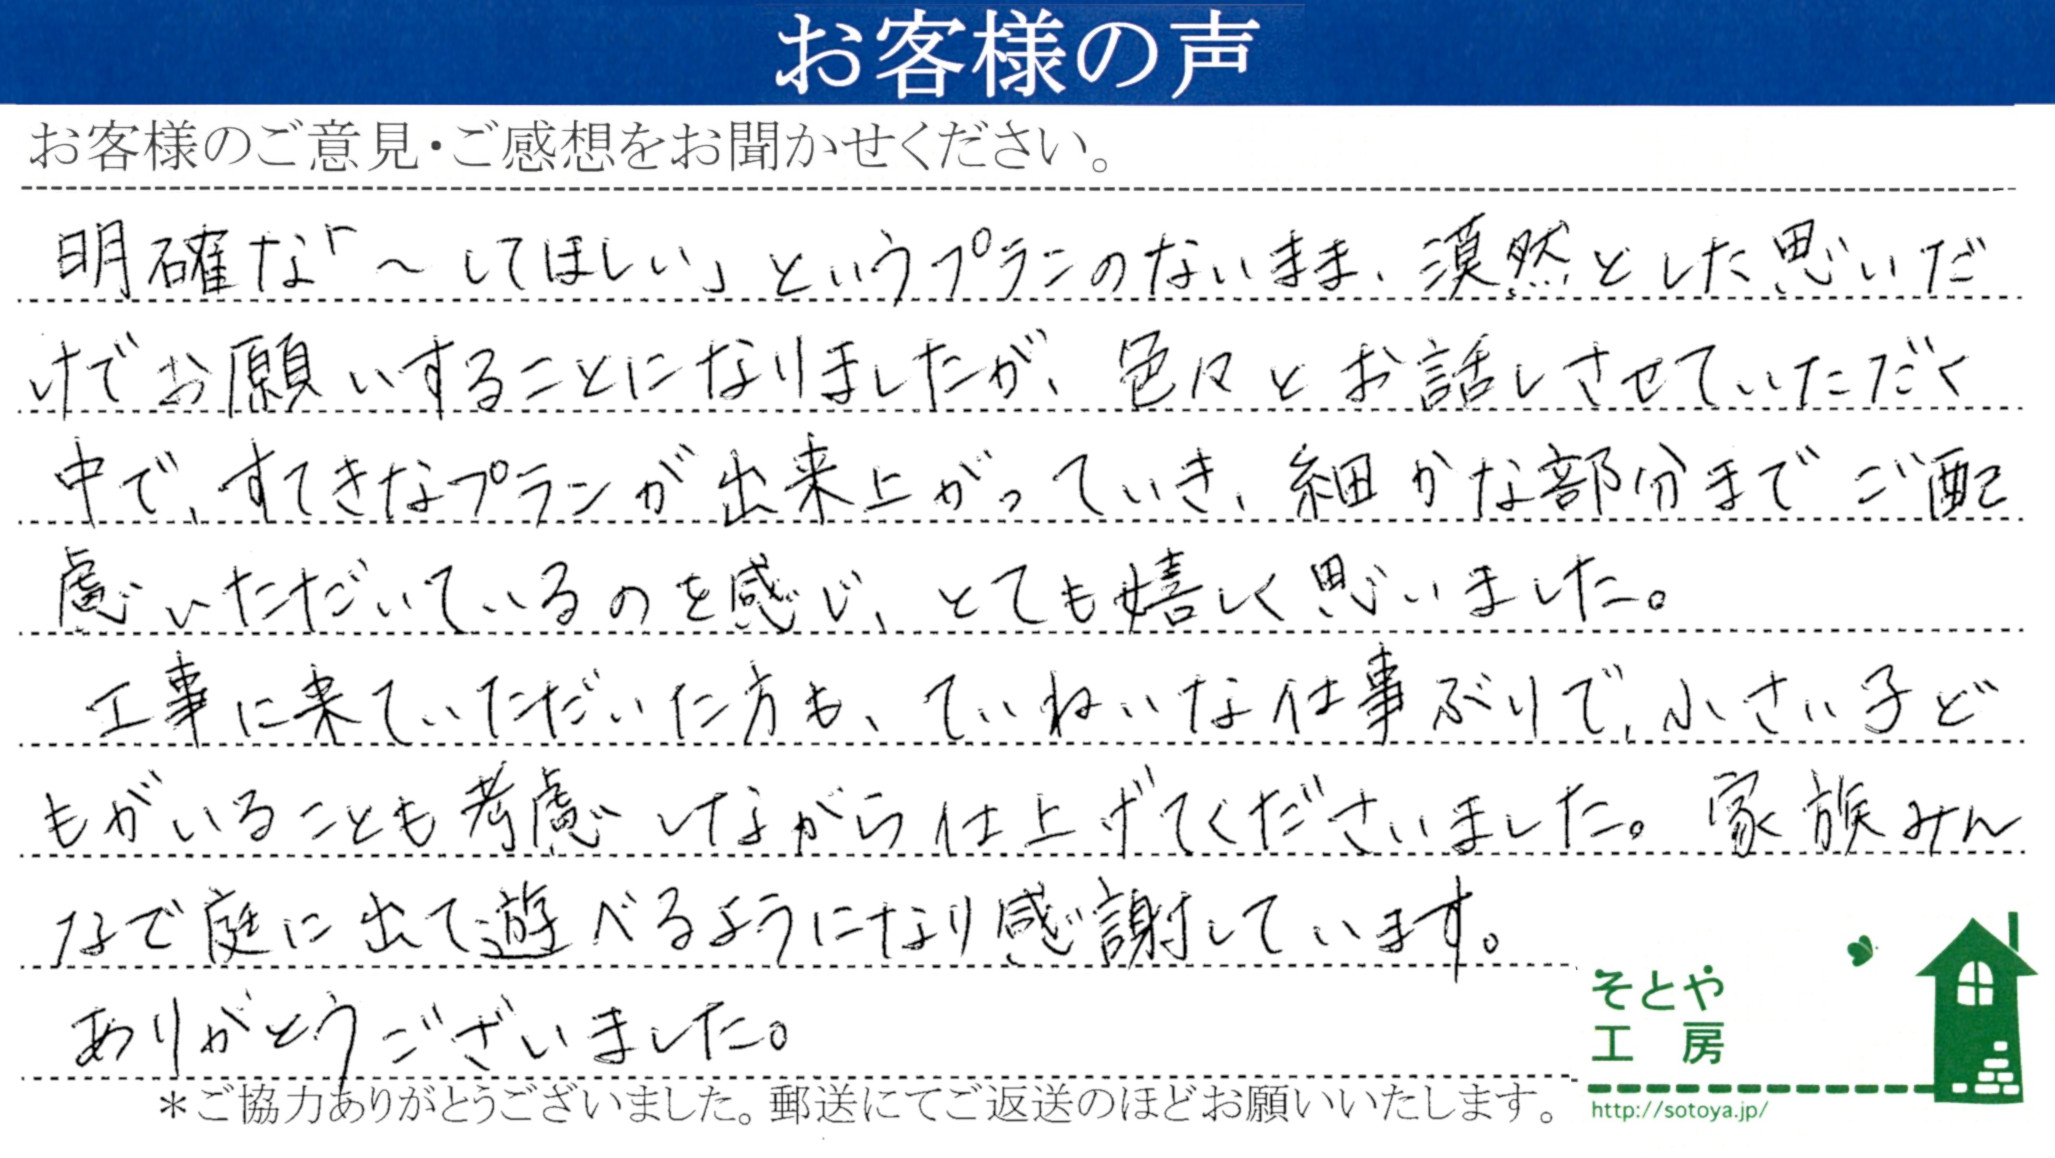 お客様の声
お客様のご意見・ご感想をお聞かせください。
明確な「～してほしい」というプランのないまま、漠然とした思いだ
けでお願いすることになりましたが、色々とお話しさせていただく
中で、すてきなプランが出来上がっていき、細かな部分までご配
慮いただいているのを感じ、とても嬉しく思いました。
工事に来ていただいた方も、ていねいな仕事ぶりで、小さい子ど
もがいることも考慮しながら仕上げてくださいました。家族みん
なで庭に出て遊べるようになり感謝しています。
ありがとうございました。
そとや
工房
http://sotoya.jp/
＊ご協力ありがとうございました。郵送にてご返送のほどお願いいたします。